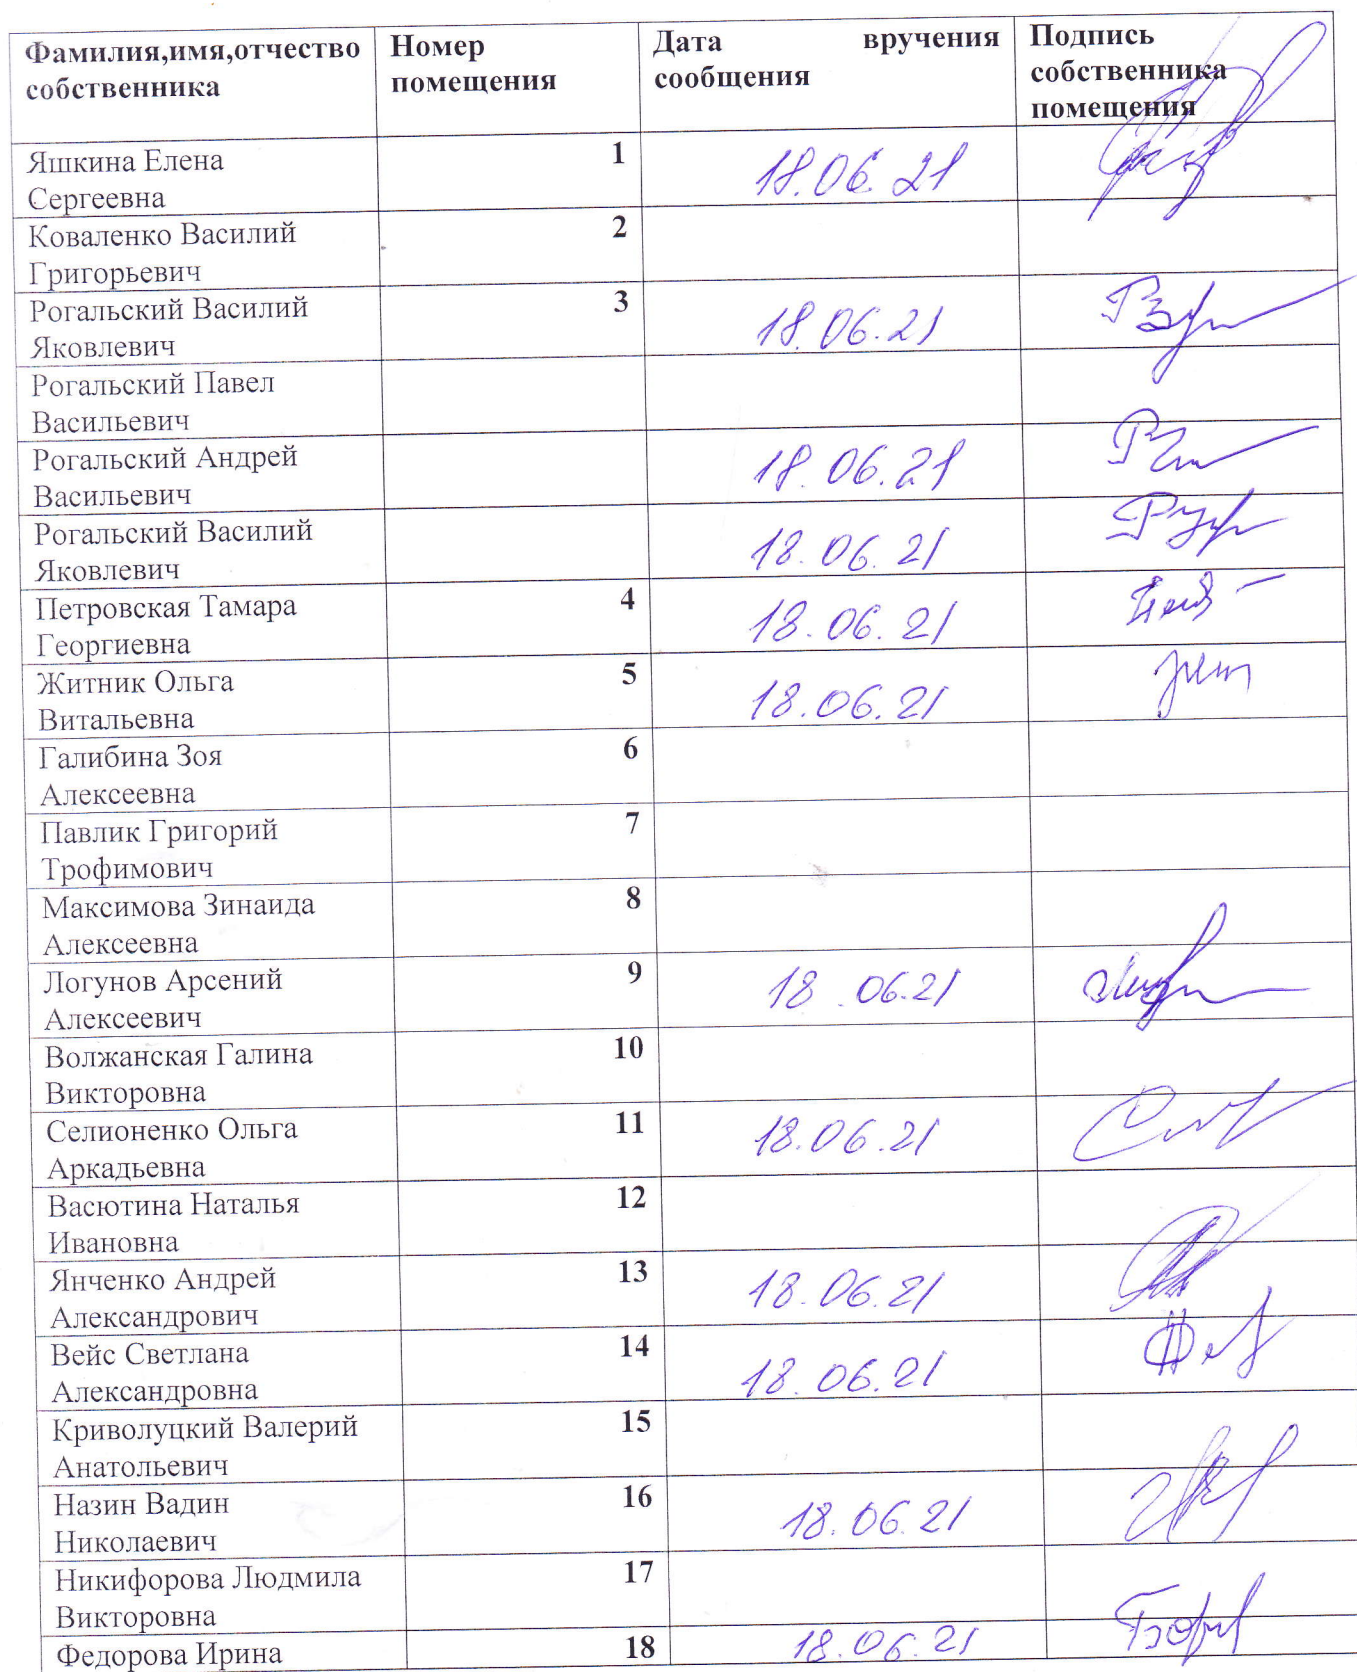 Фамилия,имя,отчество собственника
Номер помещения
Дата вручения сообщения
Подпись собственника помещения
Яшкина Елена
Сергеевна
1
18.06.21
Коваленко Василий
Григорьевич
2
Рогальский Василий
Яковлевич
3
18.06.21
Рогальский Павел
Васильевич
Рогальский Андрей
Васильевич
18.06.21
Рогальский Василий
Яковлевич
18.06.21
Петровская Тамара
Георгиевна
4
18.06.21
Житник Ольга
Витальевна
5
18.06.21
Галибина Зоя
Алексеевна
6
Павлик Григорий
Трофимович
7
Максимова Зинаида
Алексеевна
8
Логунов Арсений
Алексеевич
9
18.06.21
Волжанская Галина
Викторовна
10
Селионенко Ольга
Аркадьевна
11
18.06.21
Васютина Наталья
Ивановна
12
Янченко Андрей
Александрович
13
18.06.21
Вейс Светлана
Александровна
14
18.06.21
Криволуцкий Валерий
Анатольевич
15
Назин Вадин
Николаевич
16
18.06.21
Никифорова Людмила
Викторовна
17
Федорова Ирина
18
18.06.21